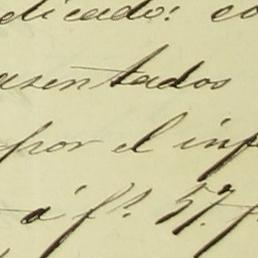 dicado: co
asentados
por el inf
á fs. 57. f